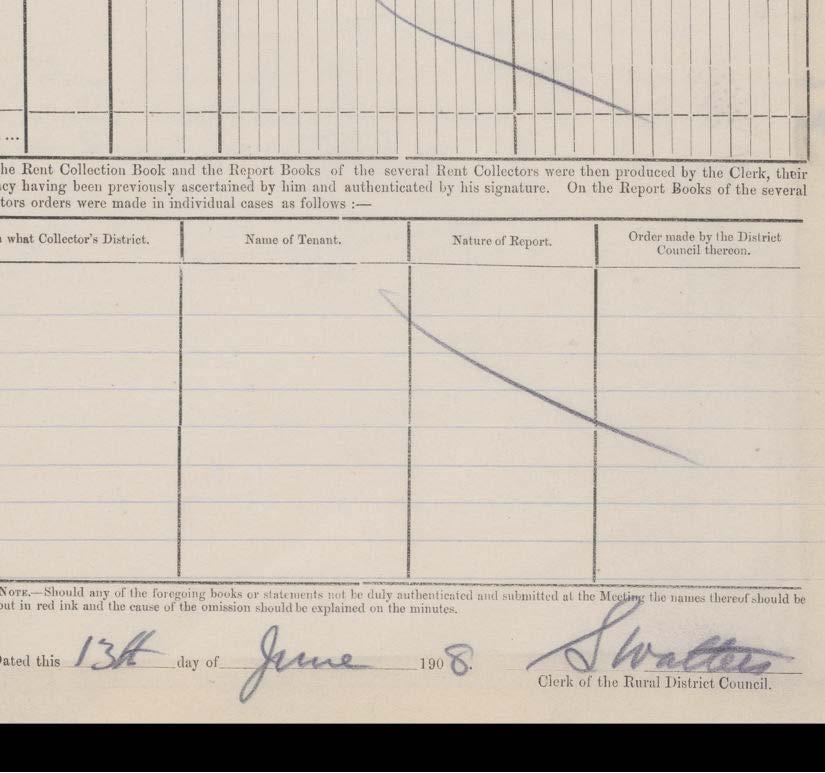 ...
he Rent Collection Book and the Report Books of the several Rent Collectors were then produced by the Clerk, their
cy having been previously ascertained by him and authenticated by his signature. On the Report Books of the several
tors orders were made in individual cases as follows :—
what Collector's District. Name of Tenant. Nature of Report. Order made by the District Council thereon.
NOTE.—Should any of the foregoing books or statements not be duly authenticated and submitted at the Meeting the names thereof should be
out in red ink and the cause of the omission should be explained on the minutes.
ated this 13th day of June 1908. S Watters
Clerk of the Rural District Council.